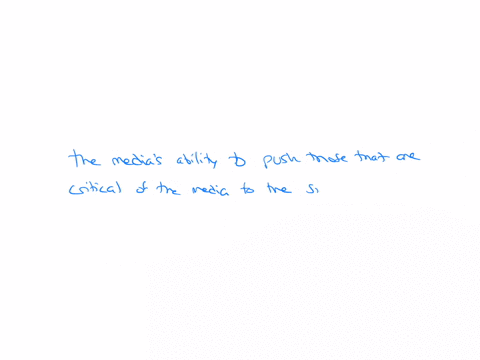 the media's ability to push those that are
critical of the media to the si